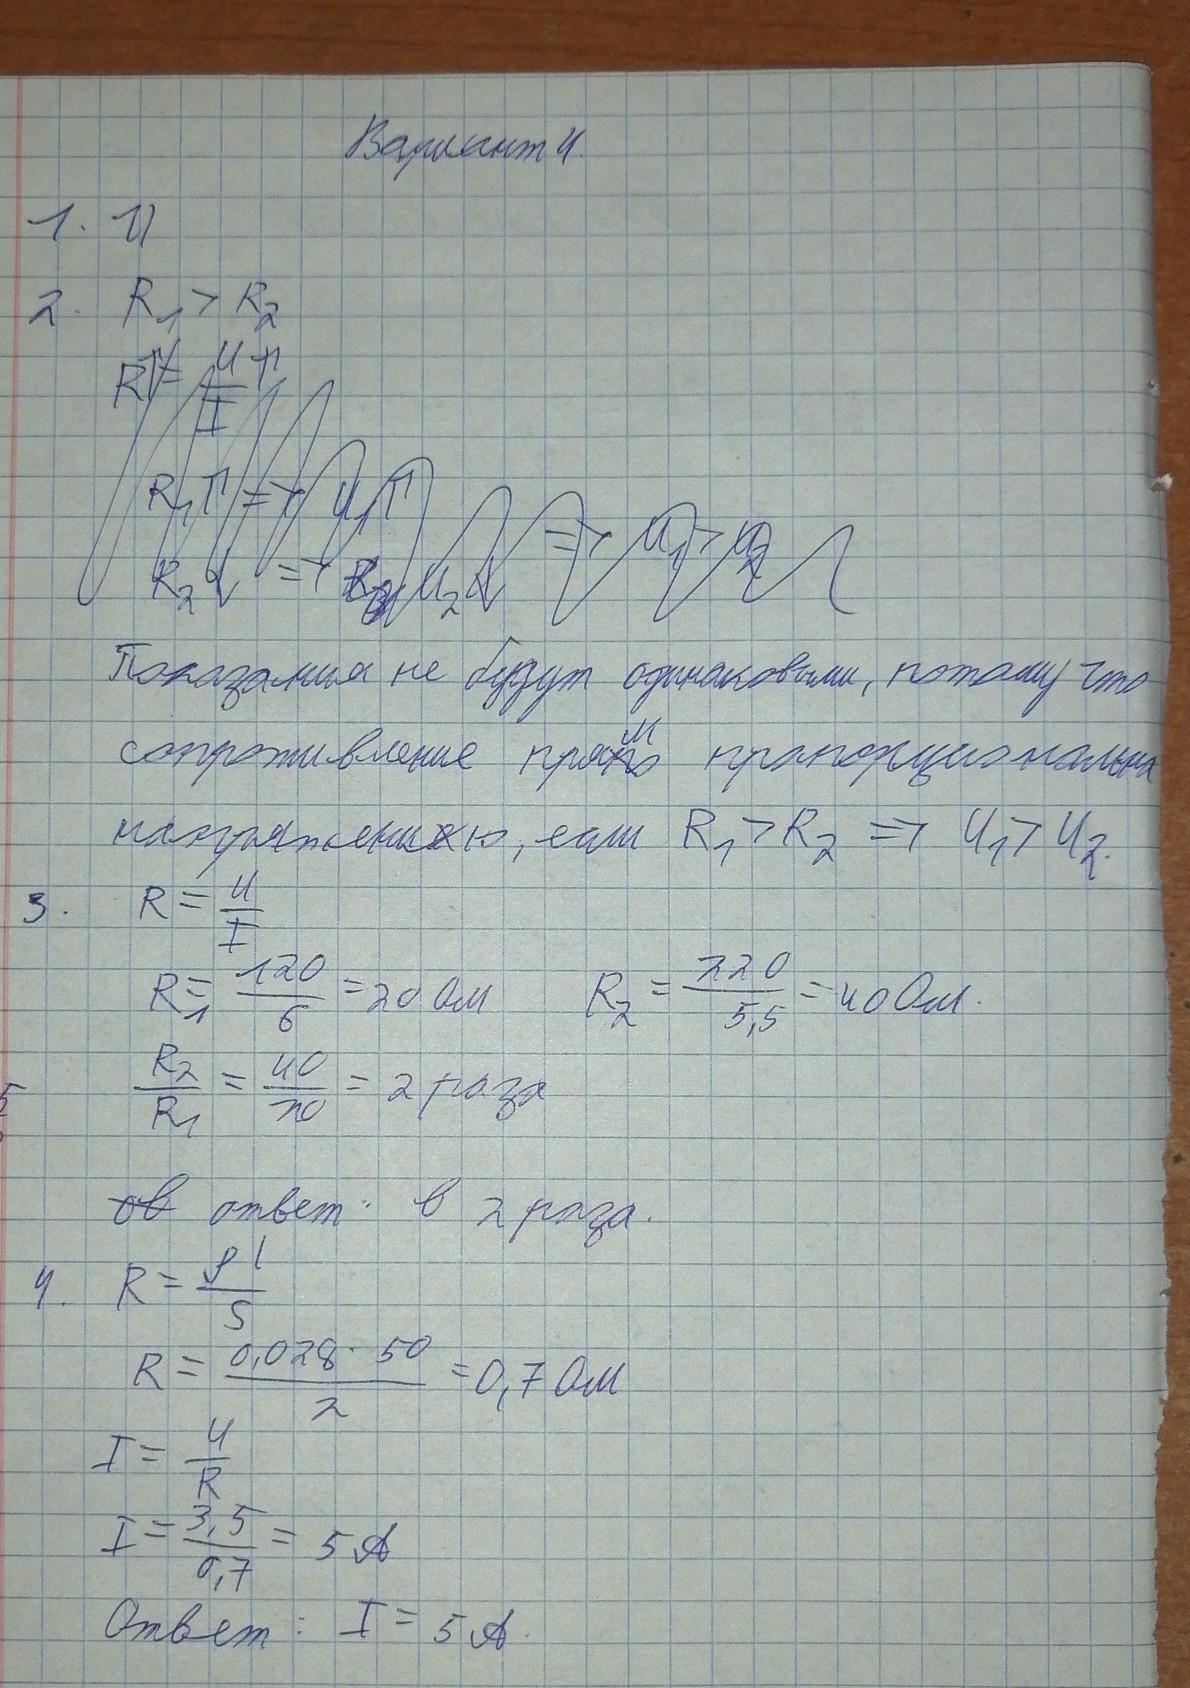 Вариант 4.
1. 1)
2. R₁ > R₂
R↑ = U↑/I
R₁↑ => U₁↑
R₂↓ => U₂↓ => U₁ > U₂
Показания не будут одинаковыми, потому что
сопротивление прямо прапорционально
напряжению, если R₁ > R₂ => U₁ > U₂.
3. R = U/I
R₁ = 120/6 = 20 Ом R₂ = 220/5,5 = 40 Ом.
R₂/R₁ = 40/20 = 2 раза
ответ: в 2 раза.
4. R = ρl/S
R = 0,028 · 50/2 = 0,7 Ом
I = U/R
I = 3,5/0,7 = 5 А
Ответ: I = 5 А.